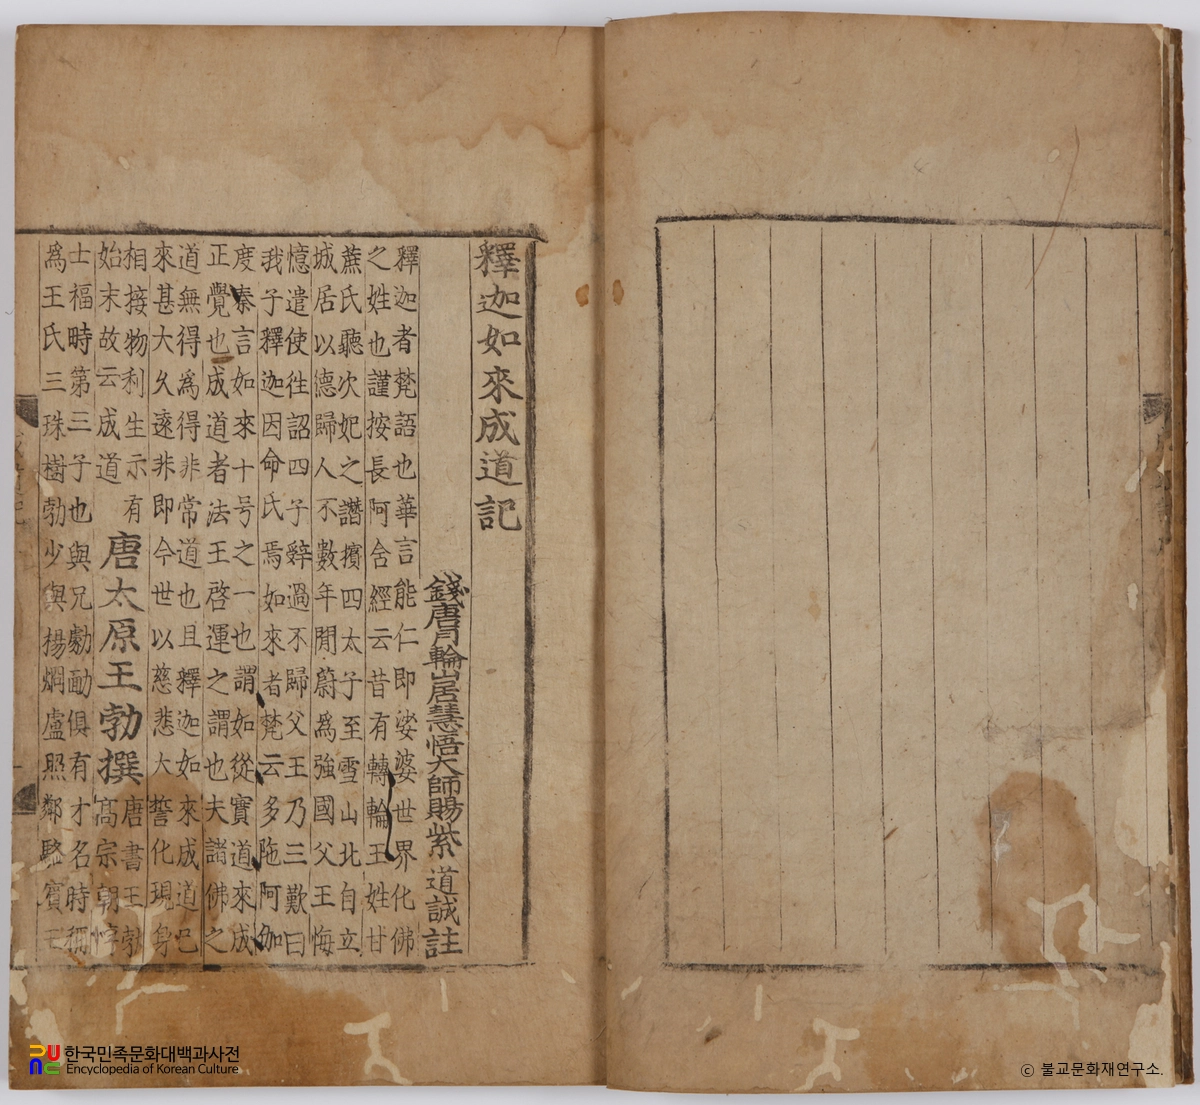 釋迦如來成道記
錢唐月輪山居慧悟大師賜紫 道誠註
釋迦者梵語也華言能仁即娑婆世界化佛
之姓也謹按長阿含經云昔有轉輪王姓甘
蔗氏聽次妃之譖擯四太子至雪山北自立
城居以德歸人不數年閒蔚爲強國父王悔
憶遣使徃詔四子辤過不歸父王乃三歎曰
我子釋迦因命氏焉如來者梵云多陁阿伽
度秦言如來十号之一也謂如從實道來成
正覺也成道者法王啓運之謂也夫諸佛之
道無得爲得非常道也且釋迦如來成道巳
來甚大久遠非即今世以慈悲大誓化現身
相接物利生示有
始末故云成道
唐太原王勃撰
唐書王勃
高宗朝
士福時第三子也與兄勮勔俱有才名時稱
爲王氏三珠樹勃少與楊烱盧照鄰駱賓王
한국민족문화대백과사전
Encyclopedia of Korean Culture
ⓒ 불교문화재연구소.